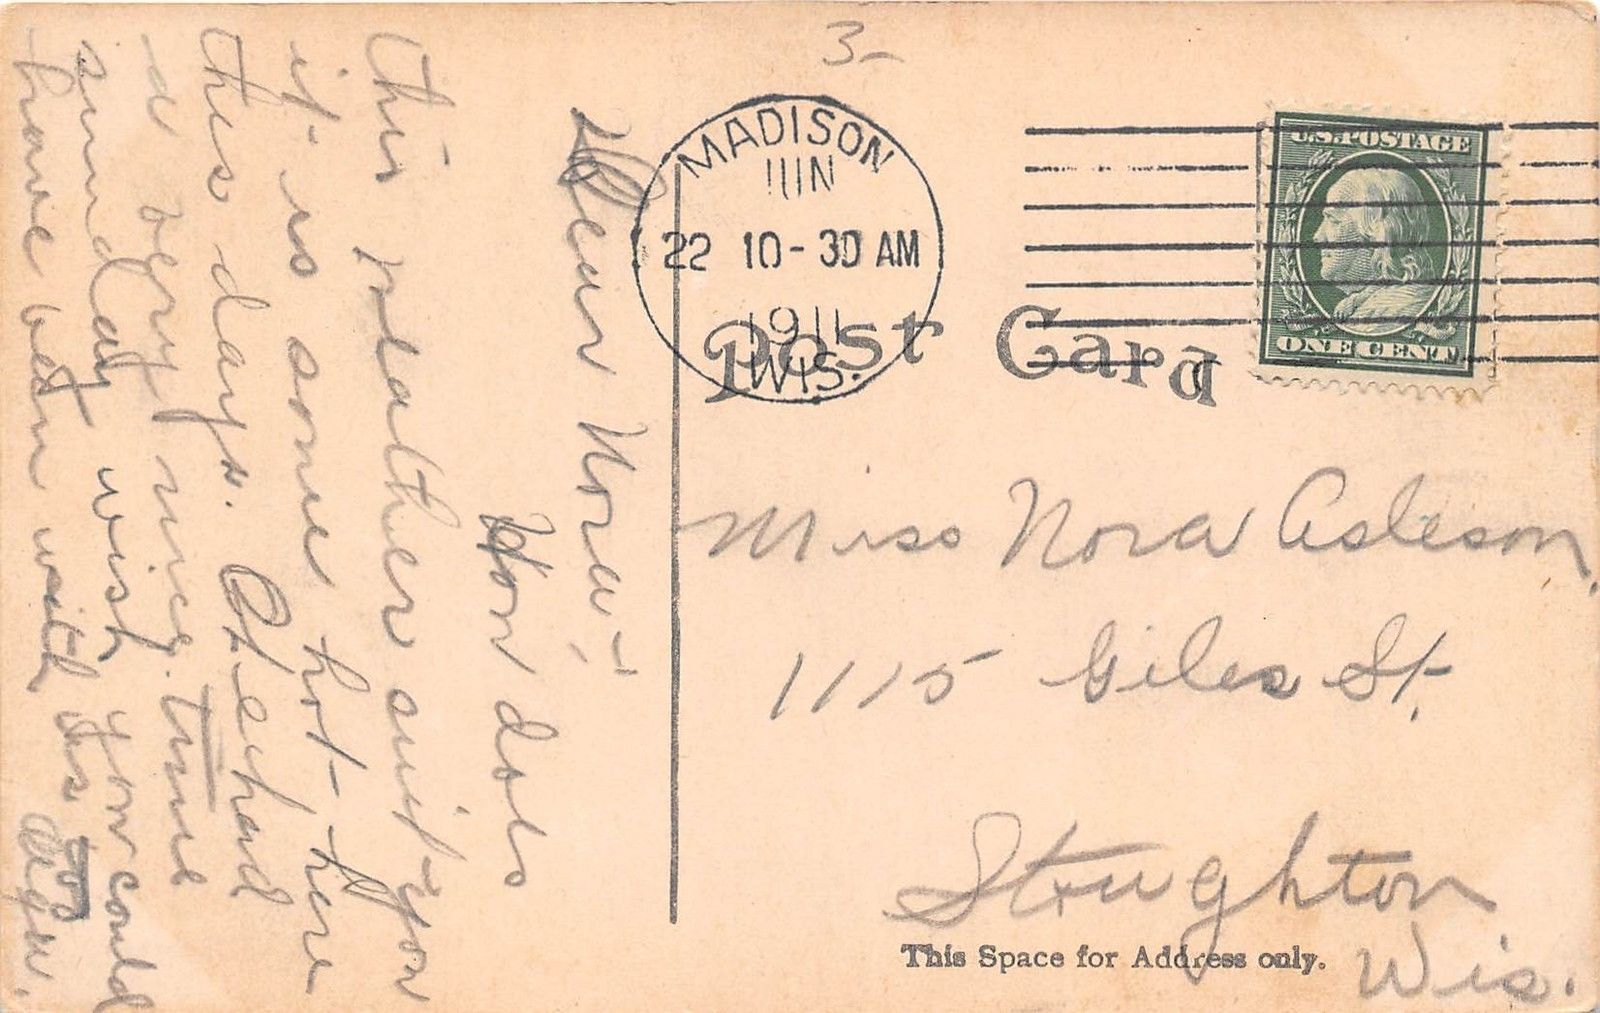 3-
MADISON
JUN
22 10-30 AM
1911
WIS.
U.S. POSTAGE
ONE CENT
Post Card
Miss Nora Asleson,
1115 Giles St.
Stoughton
Wis.
This Space for Address only.
Dear Nora,-
How dols
this weather suit you
it is some hot here
thes days. I had
a very nice time
sunday wish you could
have been with us too